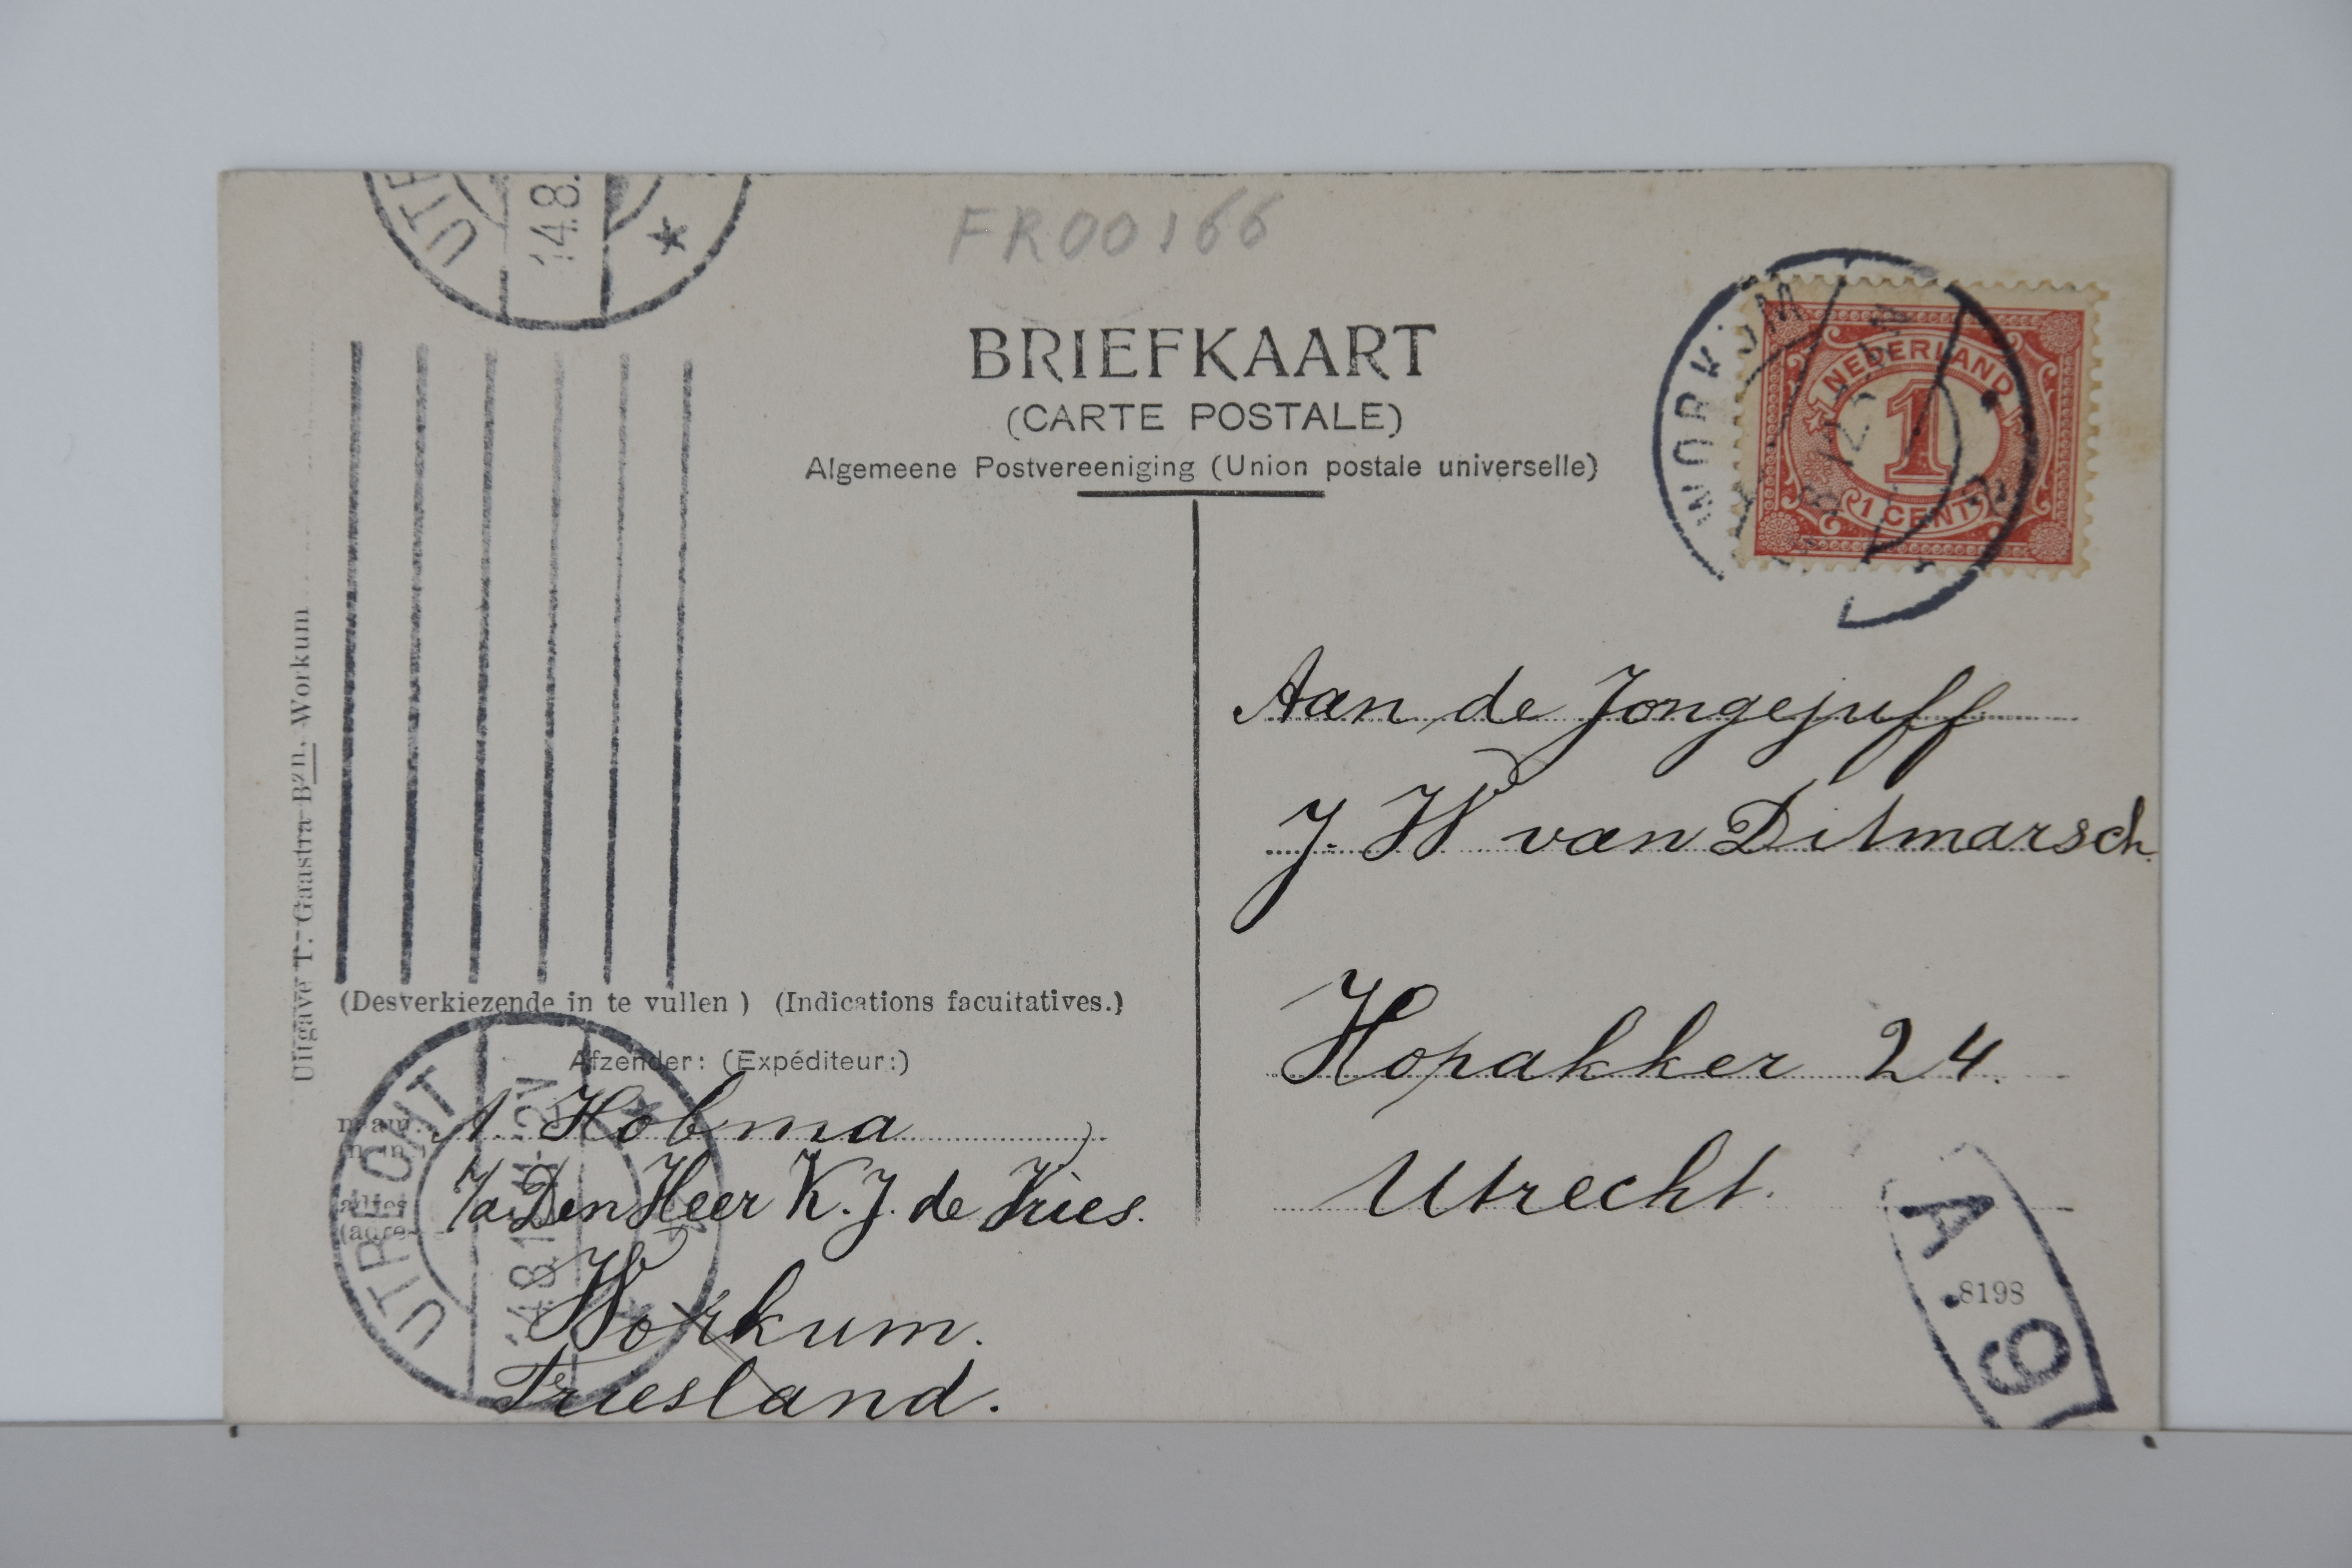 FR00166
BRIEFKAART
(CARTE POSTALE)
Algemeene Postvereeniging (Union postale universelle)
UTRE
14.8.
WORKUM
NEDERLAND
1
1 CENT
Uitgave T. Gaastra Bzn. Workum
Aan de Jongejuff
J. W van Ditmarsch.
Hopakker 24.
Utrecht.
(Desverkiezende in te vullen ) (Indications facultatives.)
Afzender: (Expéditeur:)
naam:
Hobma
adres
(adre
Den Heer K. J. de Vries.
Workum.
Friesland.
UTRECHT
14.8.1
2V
A.9
8198